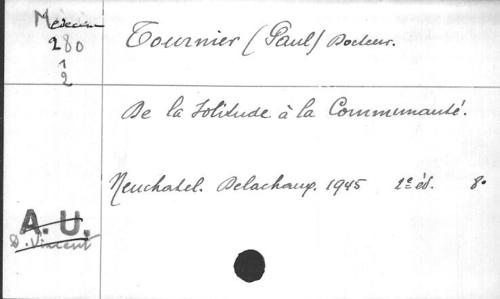 Médecine
280
1
2
Tournier (Paul) Docteur.
De la Solitude à la Communauté.
Neuchatel. Delachaux. 1945 2e éd. 8º
A. U.
D. Vincent